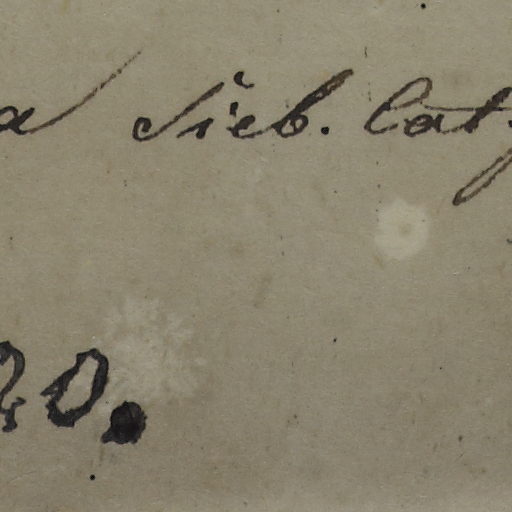 a Sieb. Cat.
20.